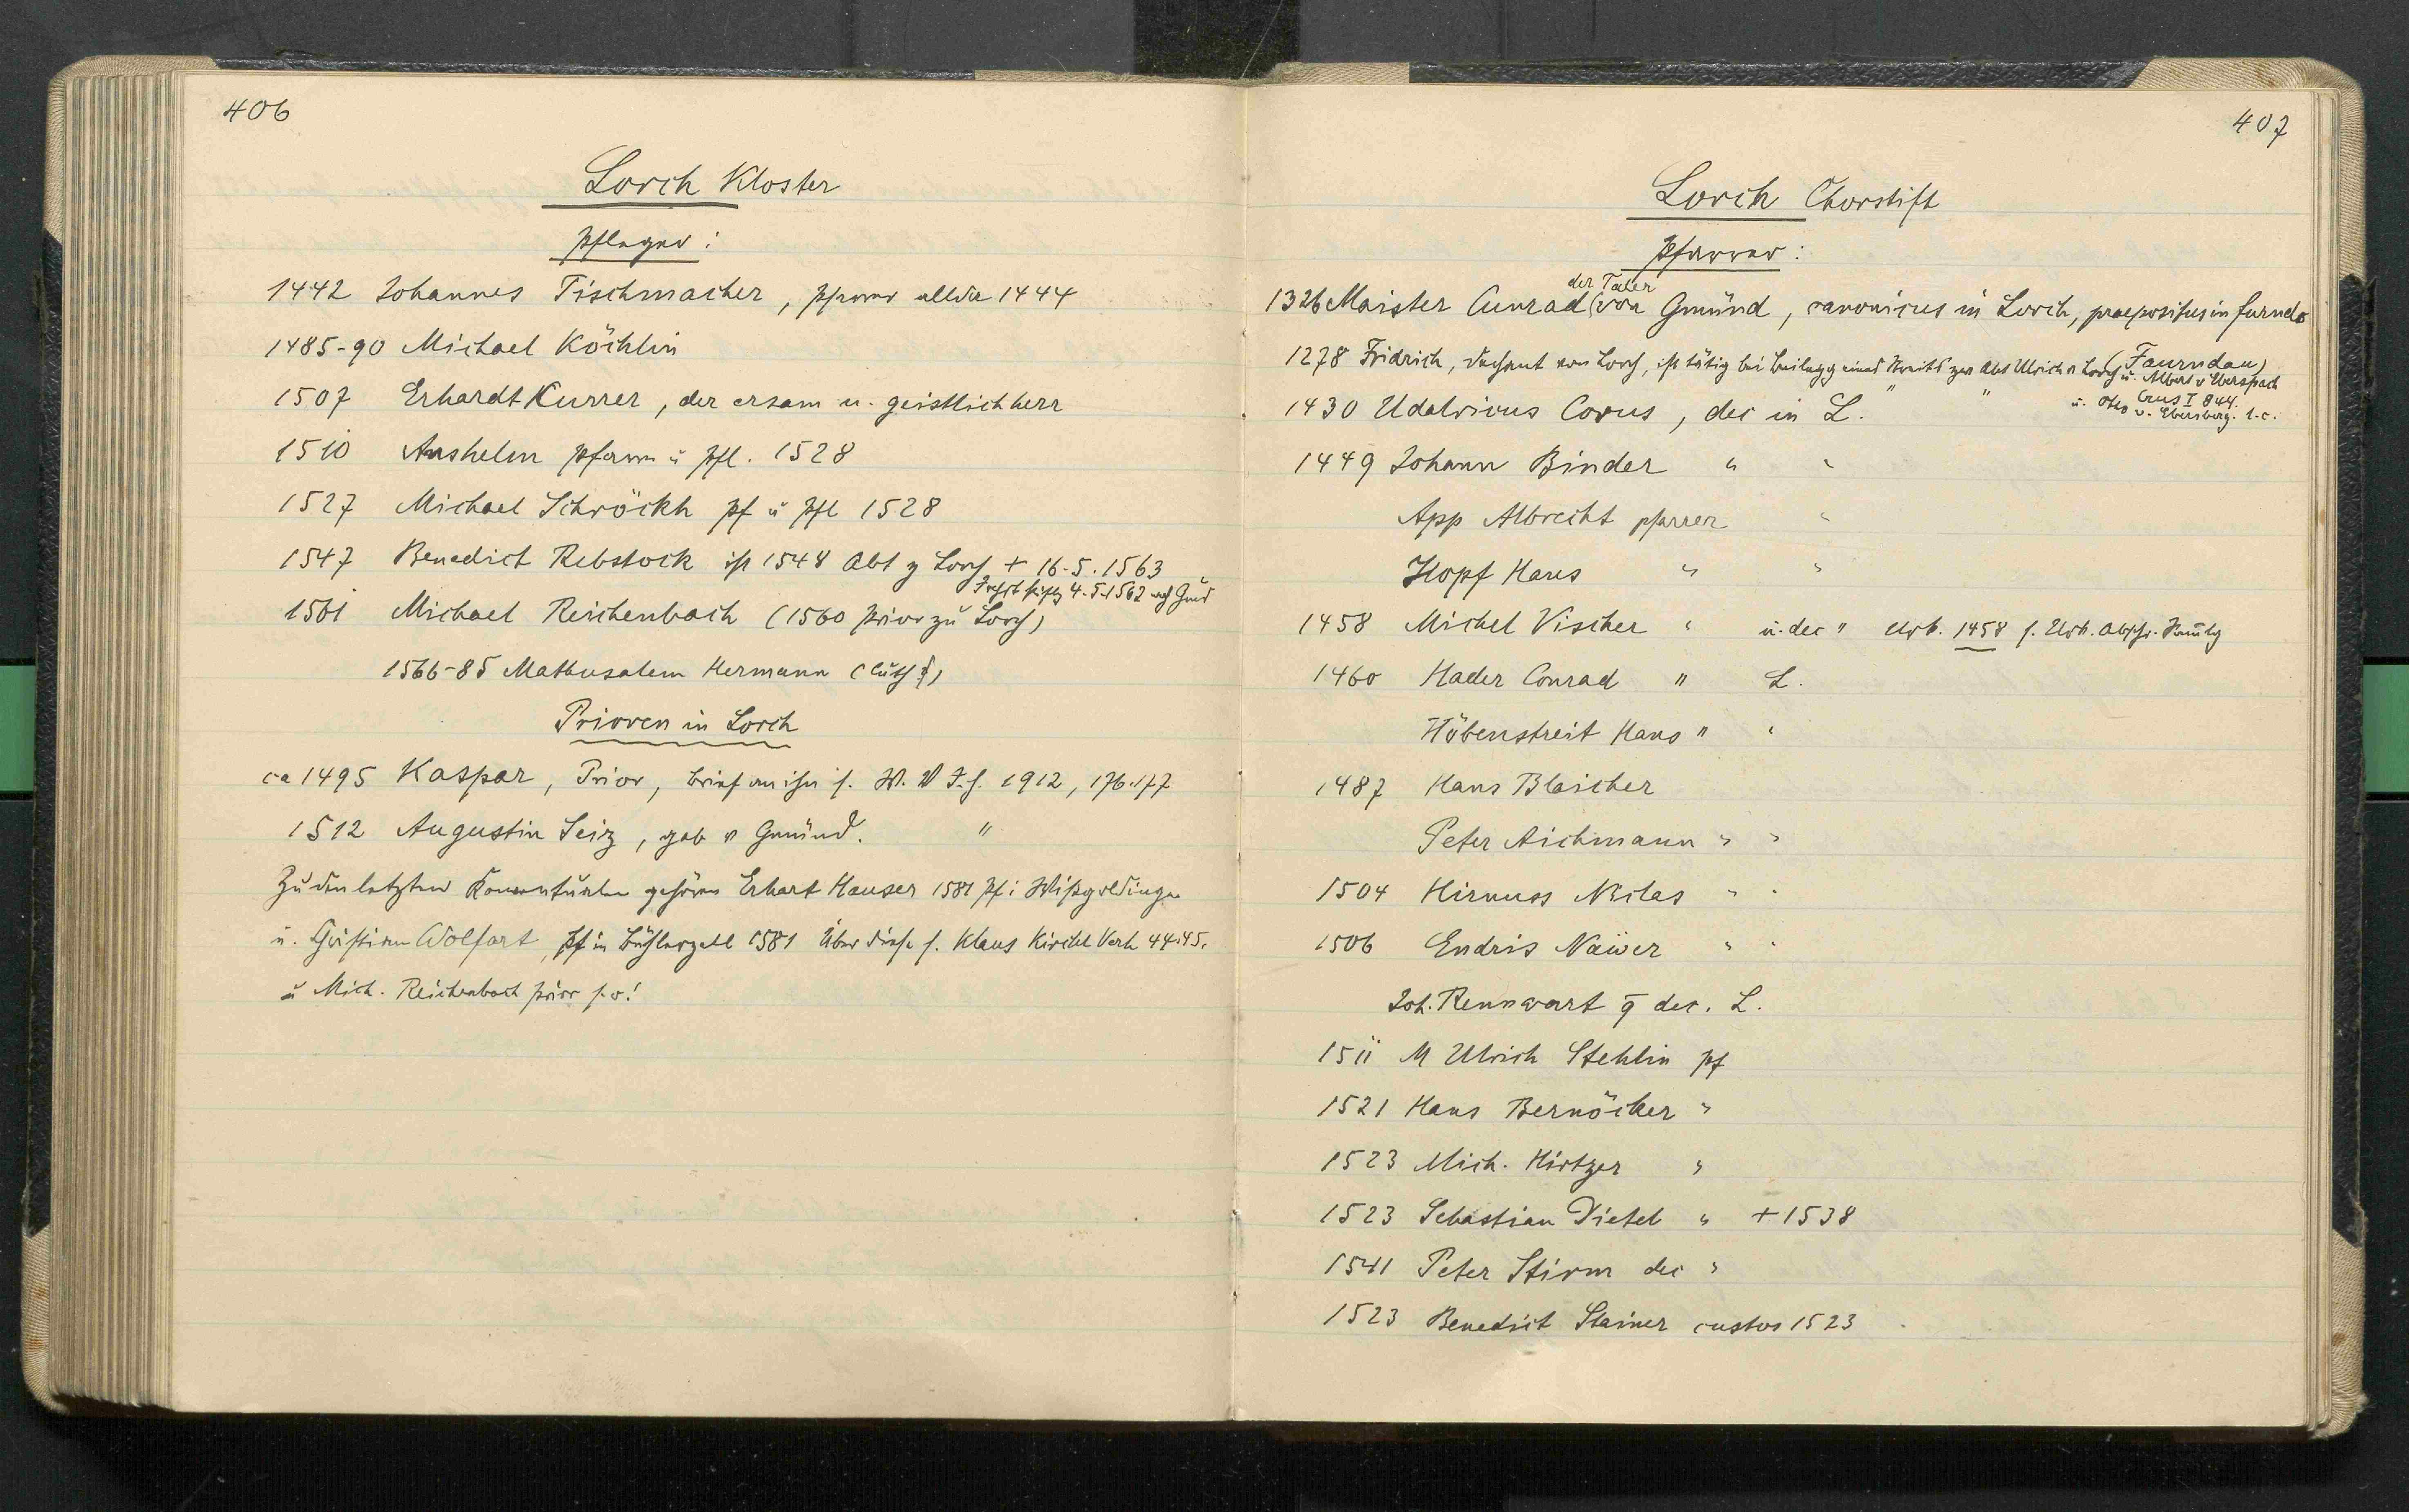 406
Lorch Kloster
Pfleger:
1442 Johannes Tischmacher, Pfarrer allda 1444
1485-90 Michael Köchlin
1507 Erhardt Kurrer, der ersam u. geistlich herr
1510 Anshelm Pfarrer u Pfl. 1528
1527 Michael Schröckh Pf u Pfl 1528
1547 Benedict Rebstock ist 1548 Abt z Lorch + 16.5.1563
4.5.1562 nach Gmd
1561 Michael Reichenbach (1560 Prior zu Lorch)
1566-85 Mathusalem Hermann (luth)
Prioren in Lorch
ca 1495 Kaspar, Prior, Brief an ihn s. W. V J.h. 1912, 176.177
1512 Augustin Seiz, geb v Gmünd. "
Zu den letzten Konventualen gehören Erhart Hauser 1581 Pf i Wißgoldingen
u. Christian Wolfart, Pf in Bühlerzell 1581 Über diese s. Klaus Kirchl Verh 44.45.
u Mich. Reichenbach Prior s.o!
407
Lorch Chorstift
Pfarrer:
der Taler
1326 Maister Cunrad von Gmünd, canonicus in Lorch, praepositus in furndo
(Faurndau)
1278 Fridrich, Dechant von Lorch, ist tätig bei Beilegg eines Streits zw Abt Ulrich v Lorch u. Albert v Eberspach
Crus I 844.
1430 Udalricus Corus, dec in L. " " u. Otto v. Ebersberg. l.c.
1449 Johann Binder " "
App Albrecht pfarrer "
Hopf Hans " "
1458 Michel Vischer " u. dec " Urb. 1458 s. Urb. Abschr.
1460 Hader Conrad " L.
Höbenstreit Hans " "
1487 Hans Blaicher
Peter Aichmann " "
1504 Hirnuss Niclas " "
1506 Endris Näwer " "
Joh. Rennwart q dec. L.
1511 M Ulrich Stehlin pf
1521 Hans Bernöcker "
1523 Mich. Hirtzer "
1523 Sebastian Dietel " + 1538
1541 Peter Stirm dec "
1523 Benedict Stainer custos 1523